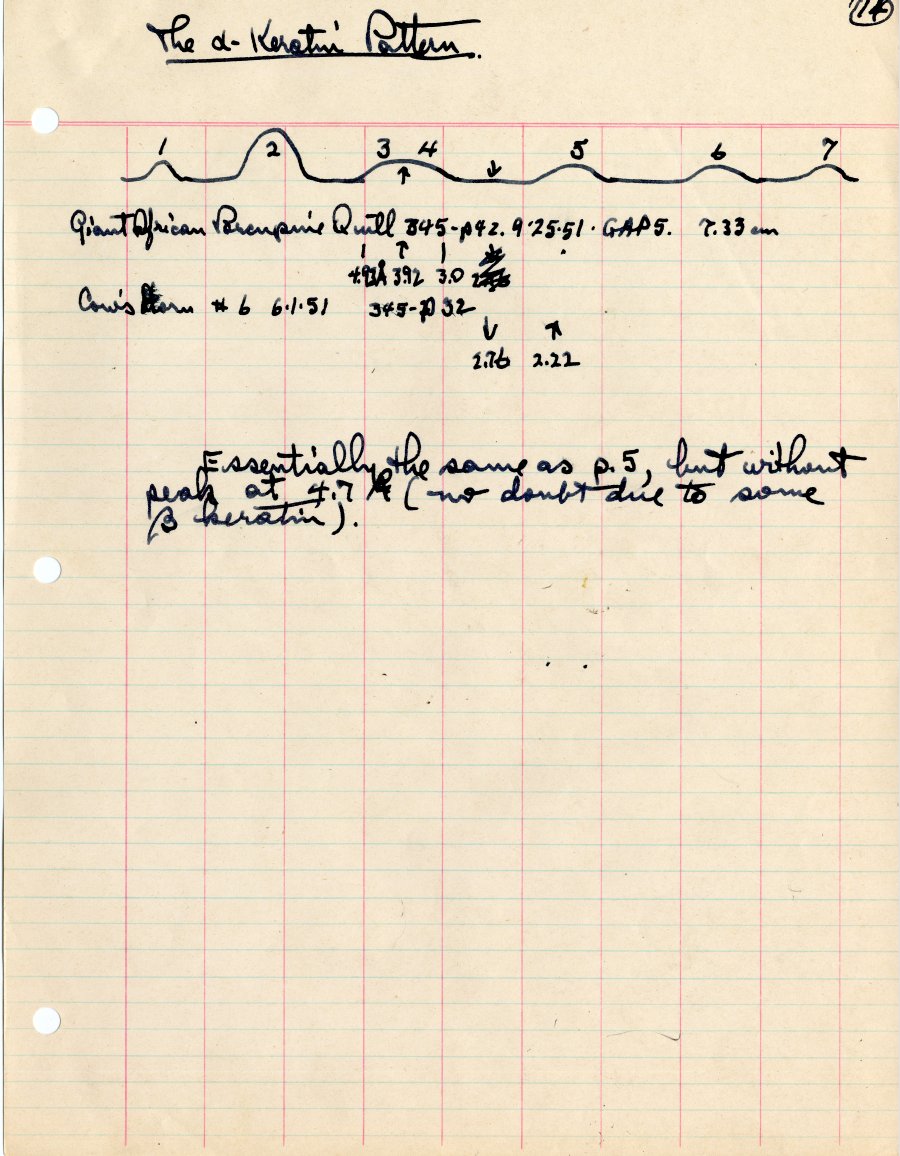 14
The α-Keratin Pattern.
1 2 3 4 5 6 7
↑ ↓
Giant African Porcupine Quill 345-p42. 9·25·51. GAP5. 7.33 cm
↑
4.93Å 3.92 3.0
Cow's Horn #6 6·1·51 345-p32
↓ ↑
2.76 2.22
Essentially the same as p.5, but without
peak at 4.7 Å (no doubt due to some
β keratin).